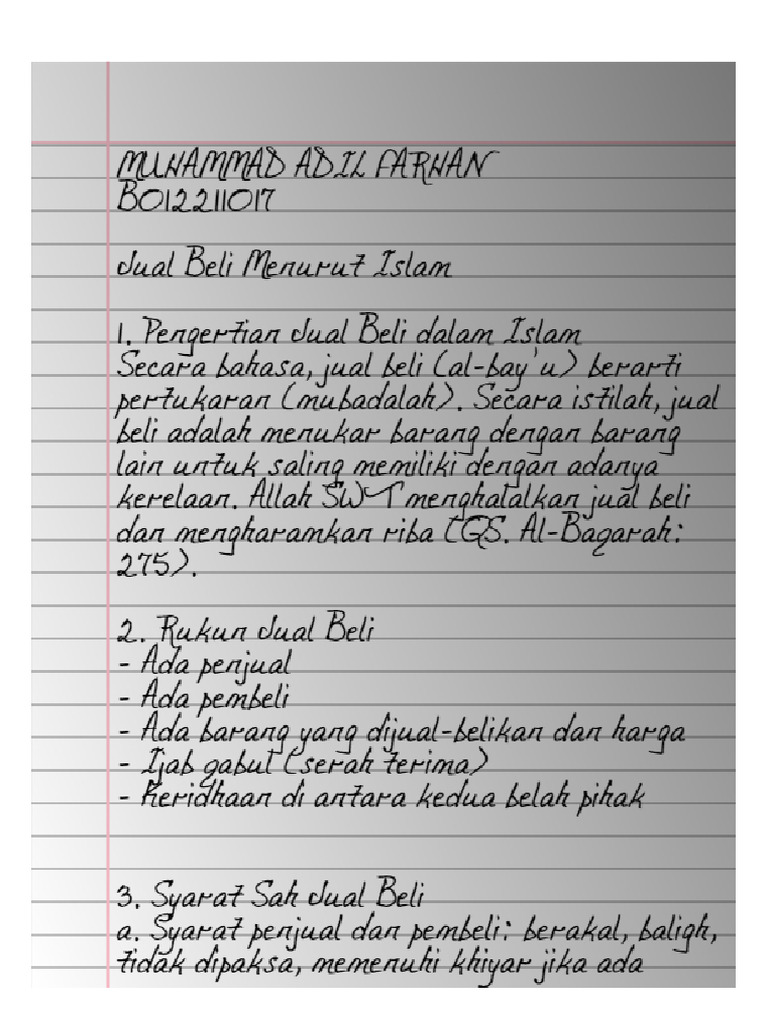 MUHAMMAD ADIL FARHAN
B012211017
Jual Beli Menurut Islam
1. Pengertian Jual Beli dalam Islam
Secara bahasa, jual beli (al-bay'u) berarti
pertukaran (mubadalah). Secara istilah, jual
beli adalah menukar barang dengan barang
lain untuk saling memiliki dengan adanya
kerelaan. Allah SWT menghalalkan jual beli
dan mengharamkan riba (QS. Al-Baqarah:
275).
2. Rukun Jual Beli
- Ada penjual
- Ada pembeli
- Ada barang yang dijual-belikan dan harga
- Ijab qabul (serah terima)
- Keridhaan di antara kedua belah pihak
3. Syarat Sah Jual Beli
a. Syarat penjual dan pembeli: berakal, baligh,
tidak dipaksa, memenuhi khiyar jika ada